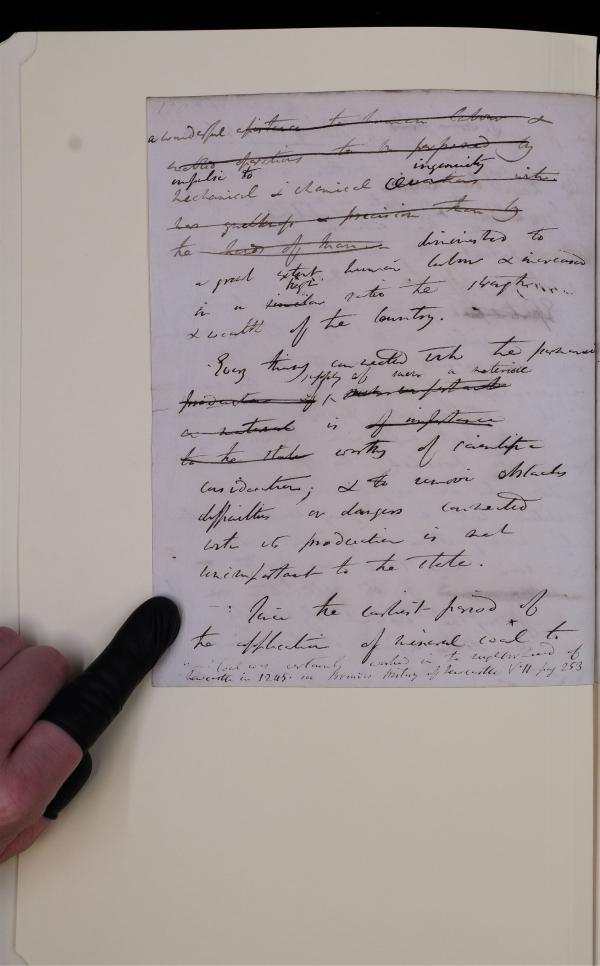 a wonderful assistance to human labour &
enabled operations to be performed by
impulse to ingenuity
mechanical & chemical with
less & precision than by
the hands of man diminished to
a great extent human labour & increased
high
in a similar ratio the strength
& wealth of the Country.
Every thing connected with the
supply of such a material
production of
a material is of importance
to the state worthy of scientific
considerations; & to remove obstacles
difficulties or dangers connected
with its production is not
unimportant to the state.
Since the earliest period of
the application of mineral coal* to
* Coal was certainly worked in the neighbourhood of
Newcastle in 1245. History of Newcastle V. II. pag 253